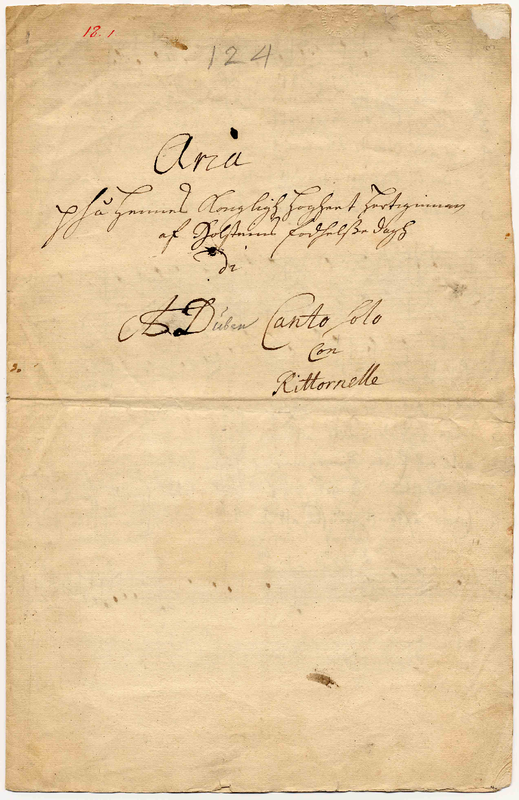 18. 1
124
Aria
phå Hennes Konglighz Hogheet Hertiginnans
af Holsteins fodhelsße dagh
di
A Düben Canto solo
Con
Rittornelle